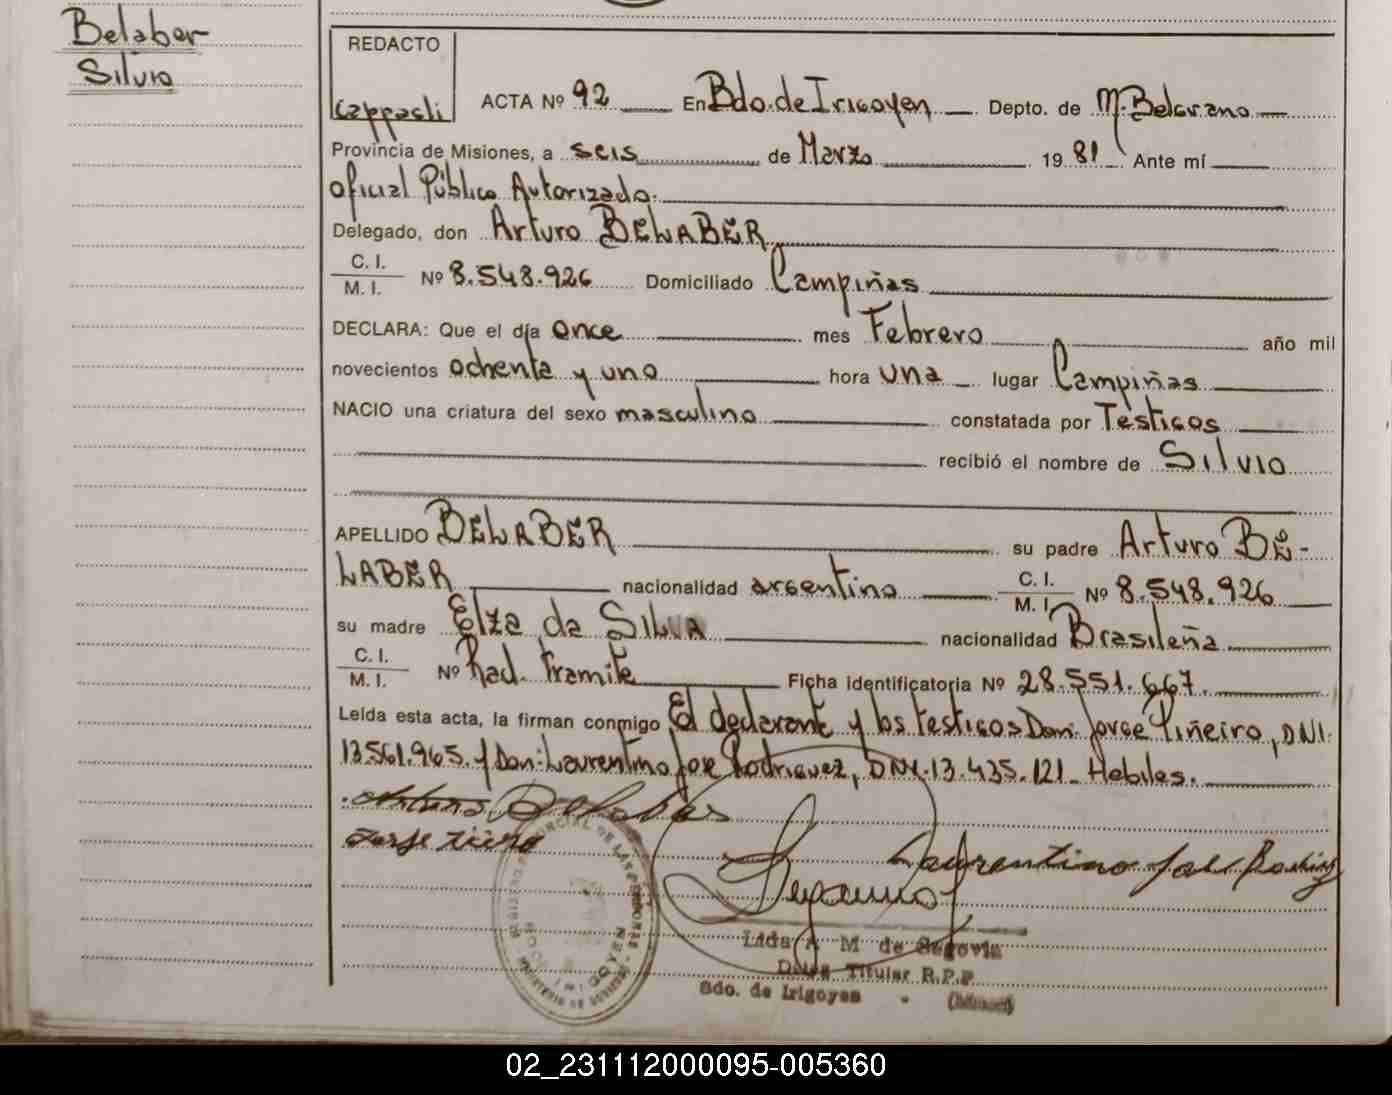 Belaber
Silvio
REDACTO
Cappasli
ACTA Nº 92 En Bdo. de Irigoyen Depto. de M. Belgrano
Provincia de Misiones, a seis de Marzo 19 81 Ante mí
oficial Público Autorizado.
Delegado, don Arturo BELABER
C. I.
M. I. Nº 8.548.926 Domiciliado Campiñas
DECLARA: Que el día once mes Febrero año mil
novecientos ochenta y uno hora una lugar Campiñas
NACIO una criatura del sexo masculino constatada por Testigos
recibió el nombre de Silvio
APELLIDO BELABER su padre Arturo BE-
LABER nacionalidad argentino C. I. M. I. Nº 8.548.926
su madre Elza da SILVA nacionalidad Brasileña
C. I.
M. I. Nº Rad. Tramite Ficha identificatoria Nº 28.551.667.
Leída esta acta, la firman conmigo El declarante y los testigos Don: Jorge Piñeiro, DNI.
13.561.965. y Don: Laurentino Jose Rodriguez, DNI. 13.435.121_ Habiles.
Arturo Belaber
Laurentino Jose
Lida A M de Segovia
Deleg Titular R.P.P
Bdo. de Irigoyen
02_231112000095-005360